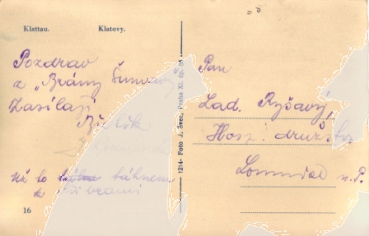 Klattau. Klatovy.
Pozdrav
z „Brány Šumavy"
Zasílají
už to táhnem
k Příbrami
16
1214 - Foto J. Šenc, Praha XI.
Pan
Lad. Ryšavý,
Hosp. družstvo
Lomnice n.P.